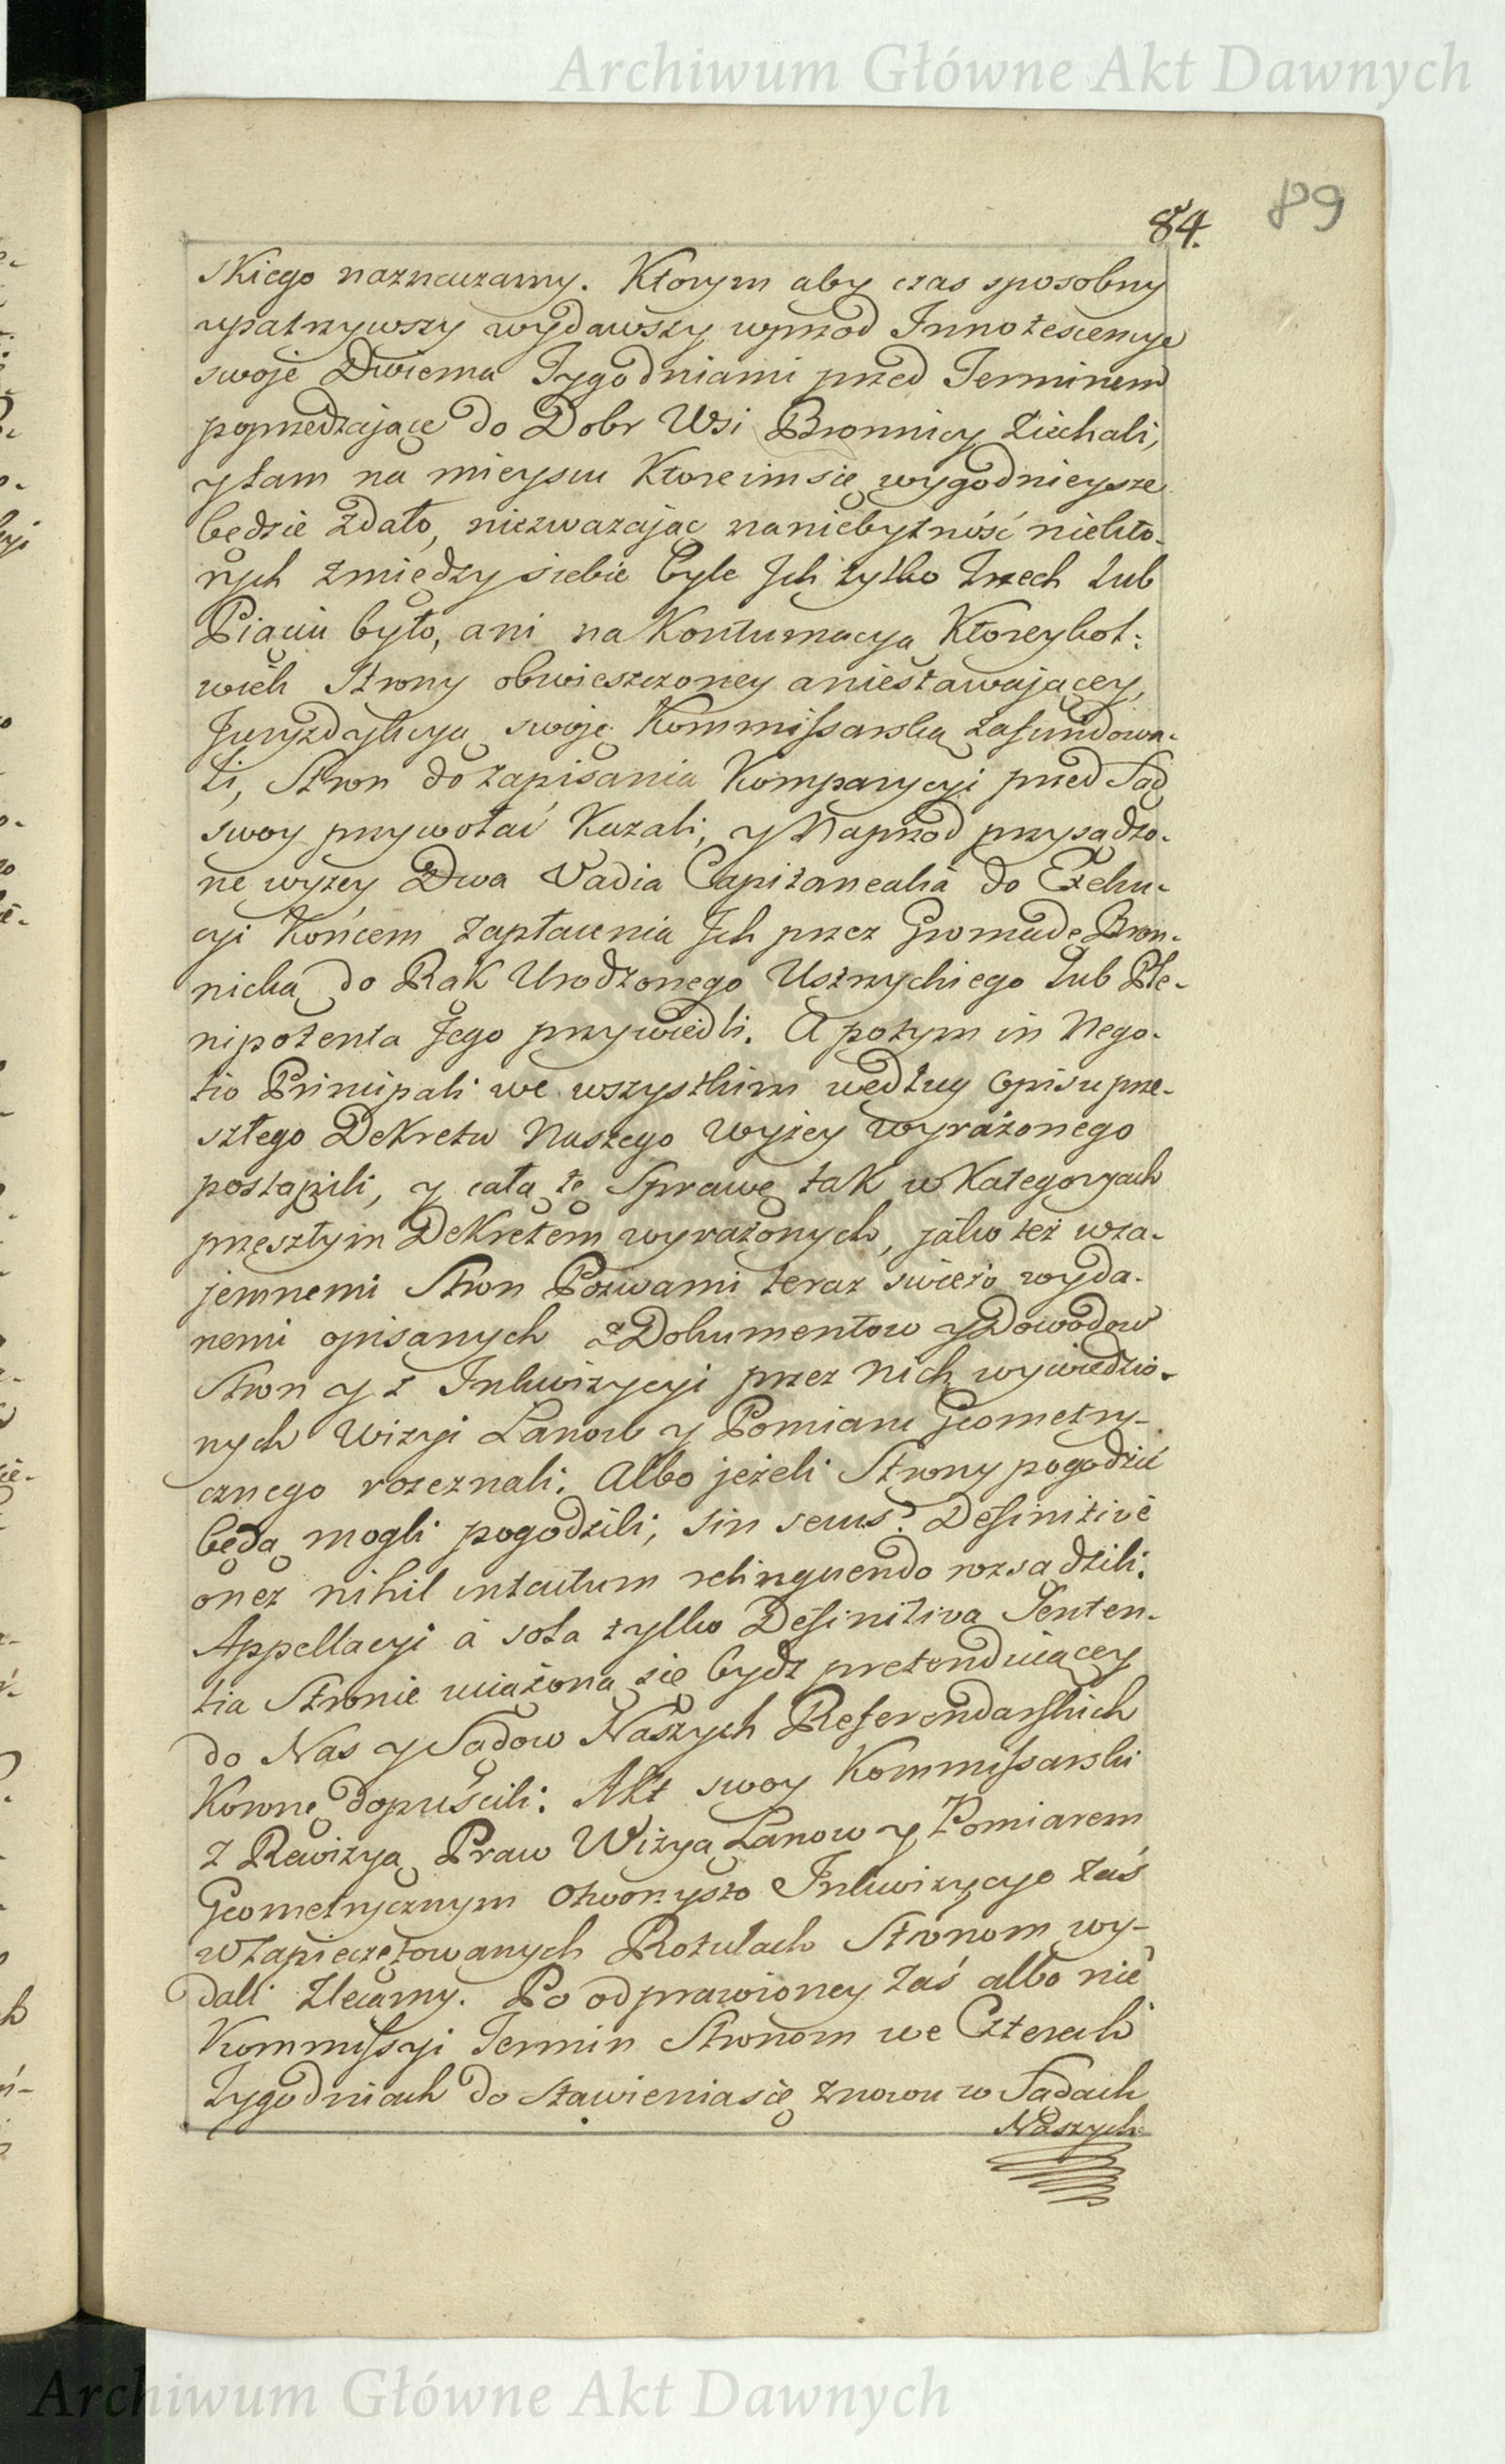 Archiwum Główne Akt Dawnych
89
84.
skiego naznaczamy. Ktorym aby czas sposobny
upatrzywszy wydawszy wprzod Innotescencye
swoje Dwiema Tygodniami przed Terminem
poprzedzaiące do Dobr Wsi Bronnicy ziechali,
y tam na mieyscu Ktore im się wygodnieysze
będzie zdało, niezwazaiąc na niebytność niekto-
rych zmiędzy siebie byle Jch tylko Trzech lub
Piąciu było, ani na Kontumacyą Ktoreykol-
wiek Strony obwieszczoney a niestawaiącey,
Juryzdykcyą swoję Kommissarską zafundowa-
li, Stron do zapisania Komparycyi przed Sąd
swoy przywołać Kazali, y Naprzod przysądzo-
ne wyzey Dwa Vadia Capitanealia do Exeku-
cyi Końcem zapłacenia Jch przez Gromadę Bron-
nicką do Rąk Urodzonego Ustrzyckiego lub Ple-
nipotenta Jego przywiedli. A potym in Nego-
tio Principali we wszystkim według opisu prze-
szłego Dekretu Naszego wyżey wyrażonego
postąpili, y całą tę Sprawę tak w Kategoryach
przeszłym Dekretem wyrażonych, jako też wza-
jemnemi Stron Pozwami teraz świeżo wyda-
nemi opisanych z Dokumentow y Dowodow
Stron y z Inkwizycyi przez Nich wywiedzio-
nych Wizyi Łanow y Pomiaru Geometry-
cznego rozeznali. Albo jeżeli Strony pogodzić
będą mogli pogodzili, sin secus? Definitive
onez nihil intactum relinquendo rozsądzili.
Appellacyi à sola tylko Definitiva Senten-
tia Stronie uciążoną się bydz pretenduiącey
do Nas y Sądow Naszych Referendarskich
Koronę dopuścili. Akt swoy Kommissarski
z Rewizyą Praw Wizyą Łanow y Pomiarem
Geometrycznym otworzysto Inkwizycye zaś
w zapieczętowanych Rotulach Stronom wy-
dali zlecamy. Po odprawioney zaś albo nie
Kommissyi Termin Stronom we Czterech
Tygodniach do stawienia się znowu w Sądach
Naszych
Archiwum Główne Akt Dawnych